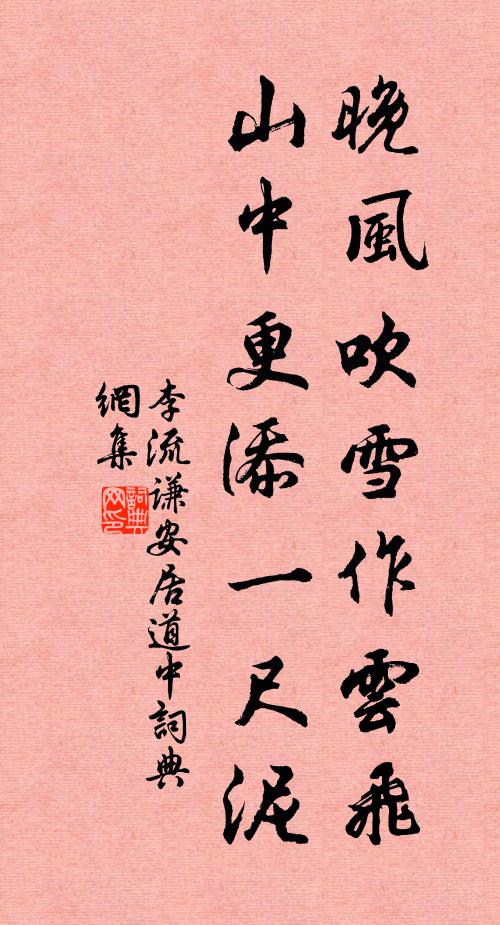 晚風吹雪作雲飛
山中更添一尺泥
李流谦安居道中詞典
網集
詞典
网印